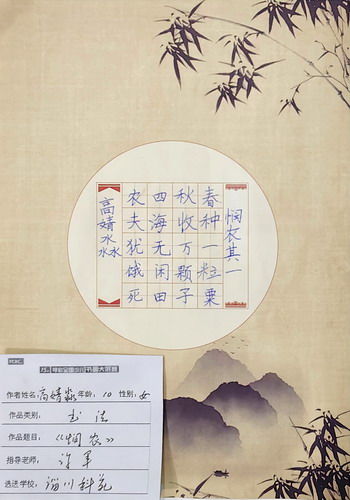 悯农其一
春种一粒粟
秋收万颗子
四海无闲田
农夫犹饿死
高婧淼
作者姓名:高婧淼 年龄:10 性别:女
作品类别:书法
作品题目:《悯农》
指导老师:许军
选送学校:淄川科苑